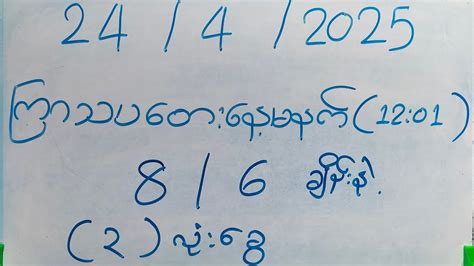 24 / 4 / 2025
ကြာသပတေးနေ့မနက် (12:01)
8 / 6 ချိန်းနဲ့
(၃) လုံးခွေ